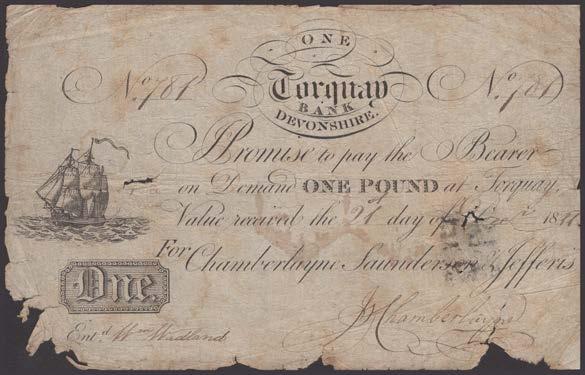 ONE
No. 781 Torquay No. 781
BANK
DEVONSHIRE.
I Promise to pay the Bearer
on Demand ONE POUND at Torquay,
Value received the day of 18
For Chamberlayne Saunders & Jefferis
One.
Jn Chamberlayne
Ent.d Wm Wadland